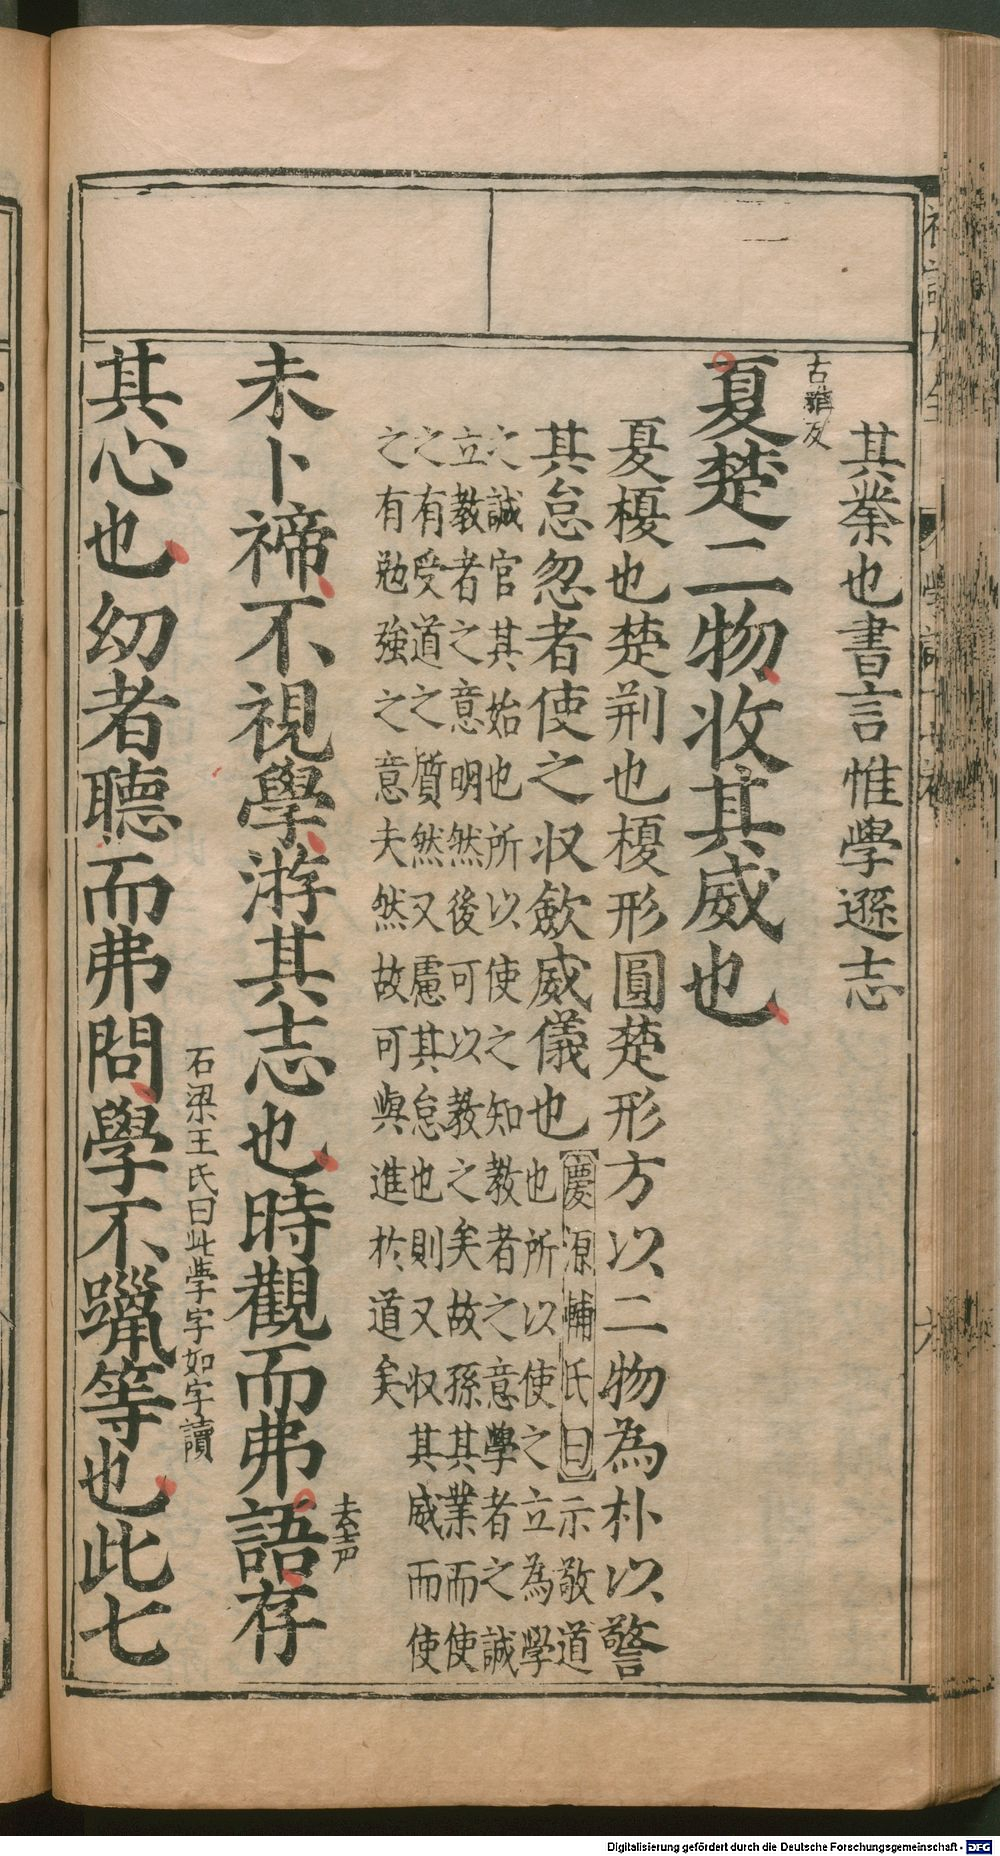 其業也書言惟學遜志
古雅反
夏楚二物收其威也
夏榎也楚荆也榎形圓楚形方以二物為朴以警
其怠忽者使之収斂威儀也
慶源輔氏曰示敬道
也所以使之立為學
之誠官其始也所以使之知教者之意學者之誠
立教者之意明然後可以教之矣故孫其業而使
之有受道之質然又慮其怠也則又収其威而使
之有勉強之意夫然故可與進於道矣
去声
未卜禘不視學游其志也時觀而弗語存
石梁王氏曰此學字如字讀
其心也幼者聽而弗問學不躐等也此七
Digitalisierung gefördert durch die Deutsche Forschungsgemeinschaft - DFG